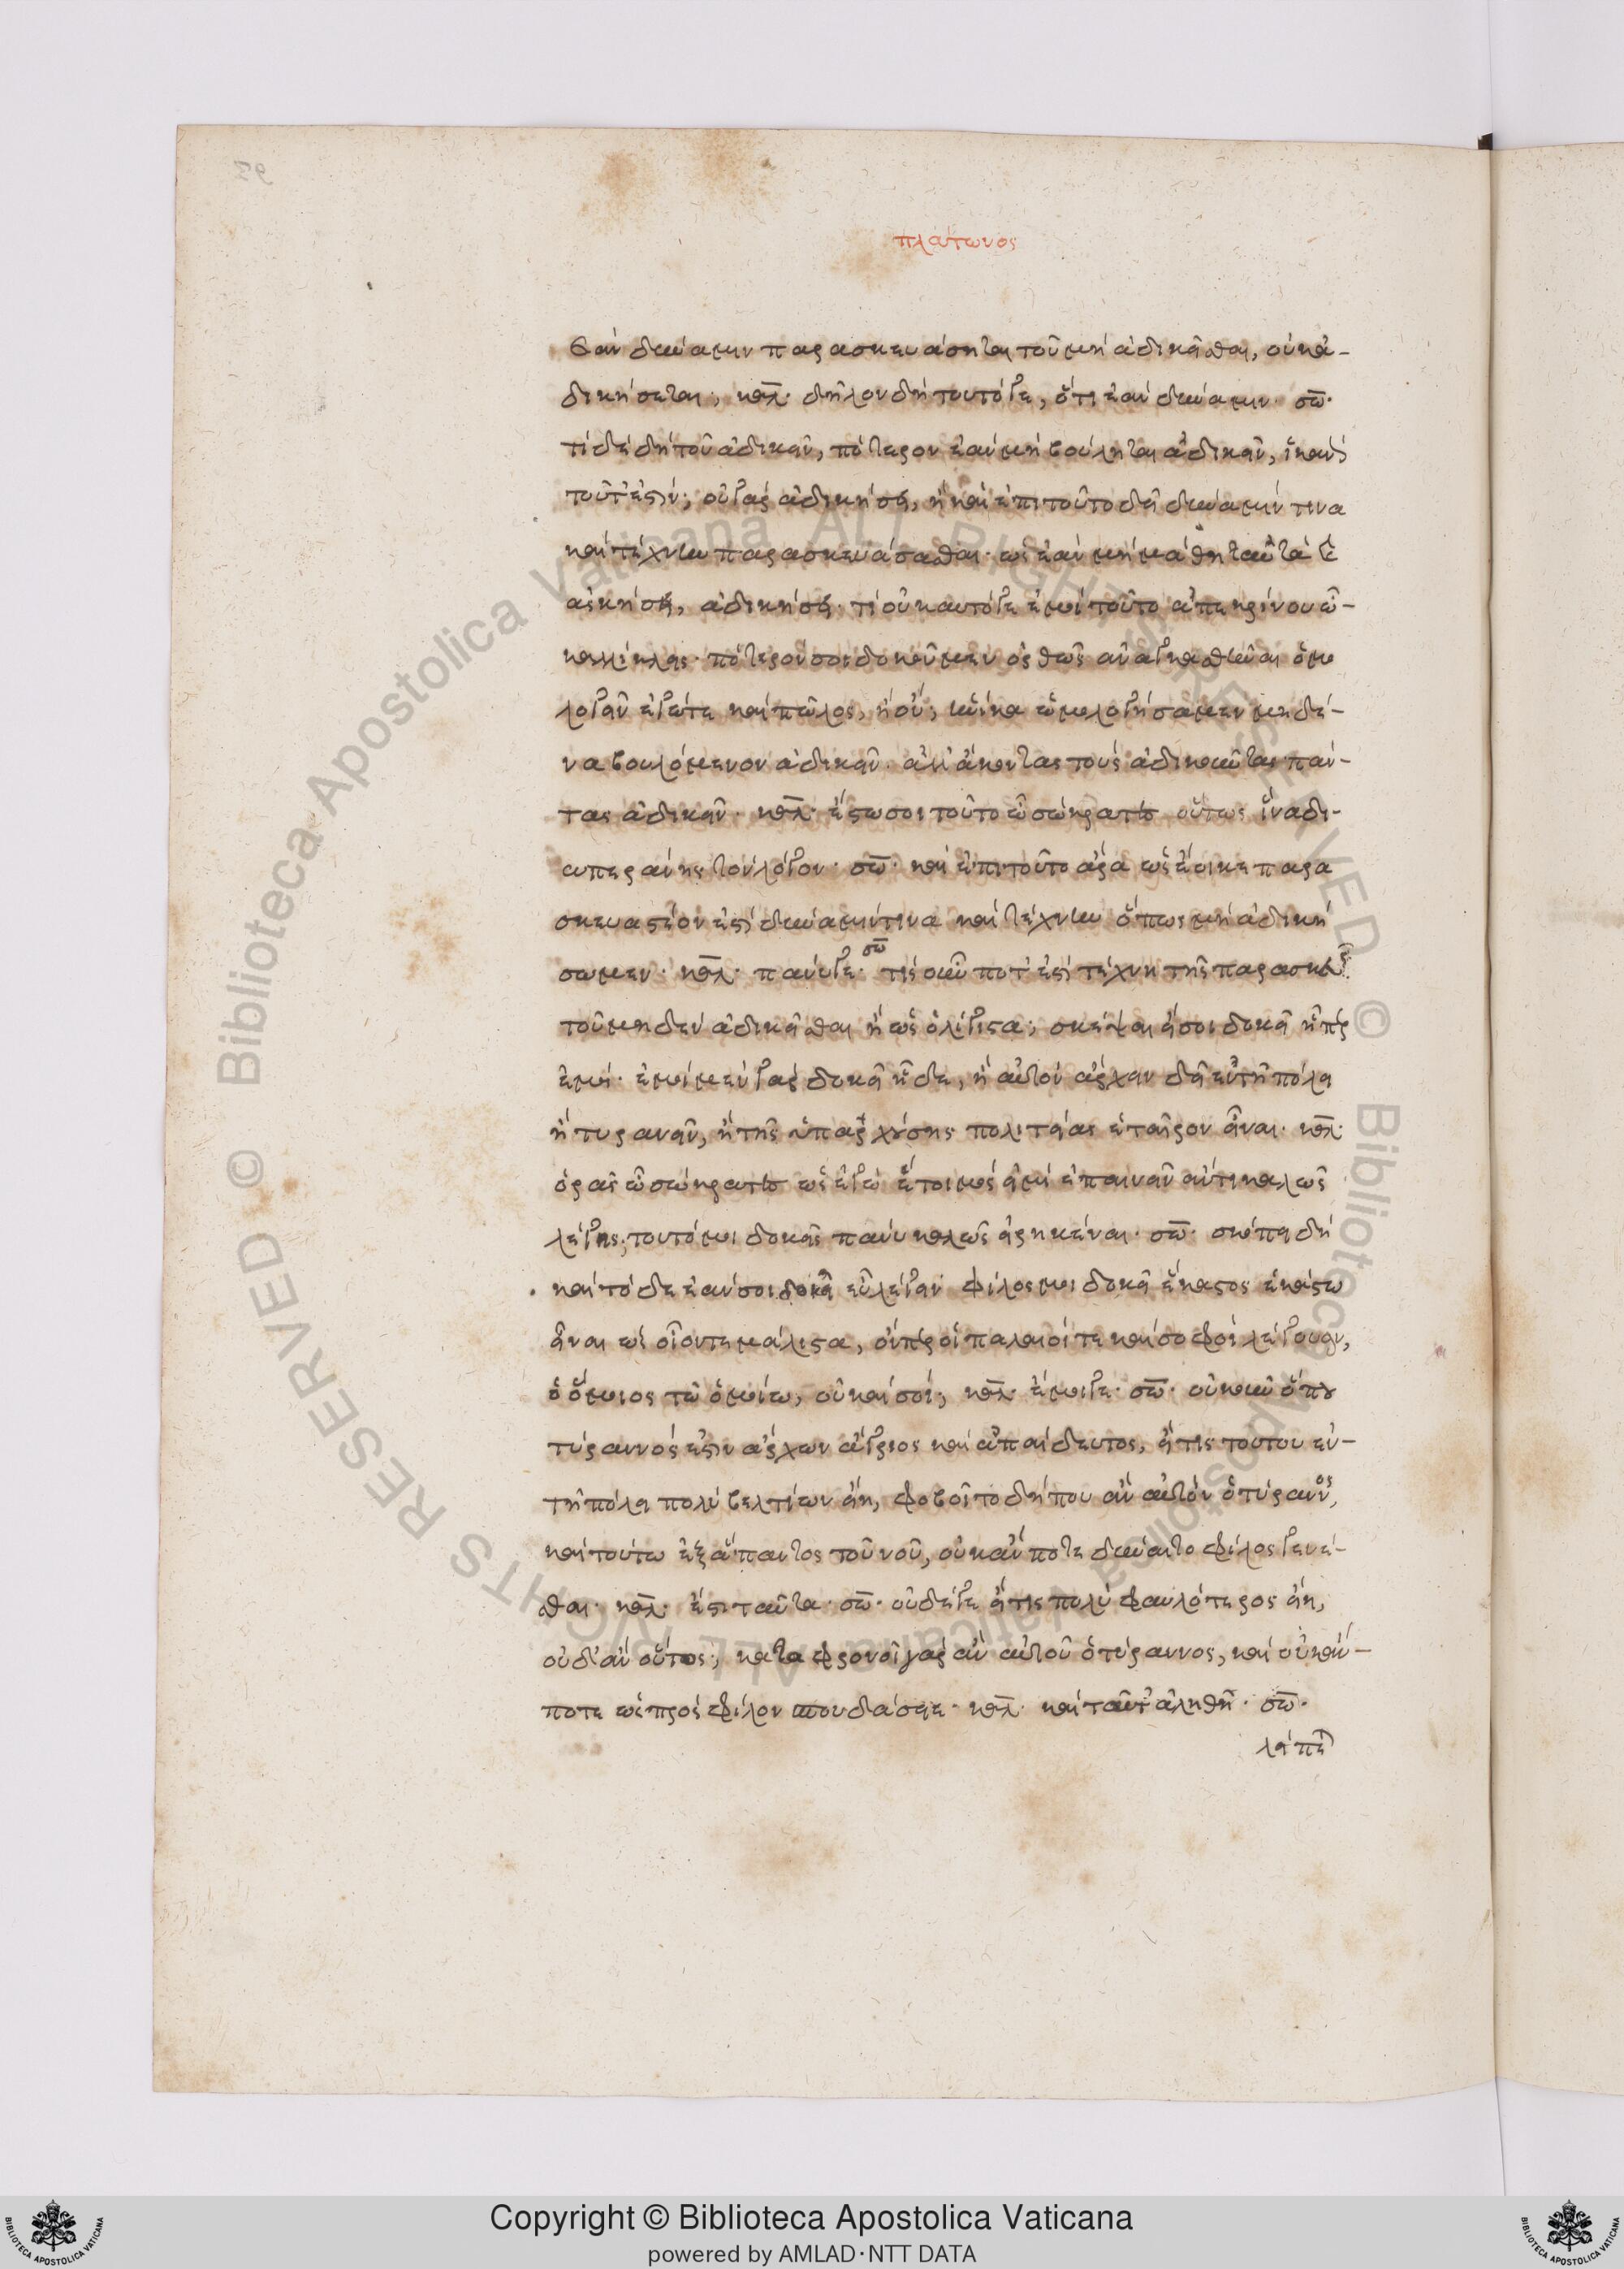 πλάτωνος
ἐὰν δύναμιν παρασκευάσηται τοῦ μὴ ἀδικεῖσθαι, οὐκ ἀ-
δικήσεται; καλ. δῆλον δὴ τουτό γε, ὅτι ἐὰν δύναμιν. σω.
τί δὲ δὴ τοῦ ἀδικεῖν, πότερον ἐὰν μὴ βούληται ἀδικεῖν, ἱκανὸν
τοῦτ' ἐστίν; οὐ γὰρ ἀδικήσει, ἢ καὶ ἐπὶ τοῦτο δεῖ δύναμίν τινα
καὶ τέχνην παρασκευάσασθαι. ὡς ἐὰν μὴ μάθῃ ταῦτα καὶ
ἀσκήσῃ, ἀδικήσει. τί οὐκ αὐτό γε ἐμοὶ τοῦτο ἀπεκρίνου ὦ-
καλλίκλεις. πότερόν σοι δοκοῦμεν ὀρθῶς ἀναγκασθῆναι ὁμο
λογεῖν ἐγώ τε καὶ πῶλος, ἢ οὔ; ἡνίκα ὡμολογήσαμεν μηδέ-
να βουλόμενον ἀδικεῖν. ἀλλ' ἄκοντας τοὺς ἀδικοῦντας πάν-
τας ἀδικεῖν. καλ. ἔστω σοι τοῦτο ὦ σώκρατες οὕτως ἵνα δι-
απεράνῃς τὸν λόγον. σω. καὶ ἐπὶ τοῦτο ἄρα ὡς ἔοικε παρα
σκευαστέον ἐστὶ δύναμίν τινα καὶ τέχνην ὅπως μὴ ἀδική
σωμεν. καλ. πάνυ γε. σω τίς οὖν ποτ' ἐστὶ τέχνη τῆς παρασκευῆς
τοῦ μηδὲν ἀδικεῖσθαι ἢ ὡς ὀλίγιστα; σκέψαι εἴ σοι δοκεῖ ᾗπερ
ἐμοί. ἐμοὶ μὲν γὰρ δοκεῖ ἥδε, ἢ αὐτὸν ἄρχειν δεῖ ἐν τῇ πόλει
ἢ τυραννεῖν, ἢ τῆς ὑπαρχούσης πολιτείας ἑταῖρον εἶναι. καλ.
ὁρᾷς ὦ σώκρατες ὡς ἐγὼ ἕτοιμός εἰμι ἐπαινεῖν ἄν τι καλῶς
λέγῃς; τουτό μοι δοκεῖς πάνυ καλῶς εἰρηκέναι. σω. σκόπει δὴ
καὶ τόδε ἐάν σοι δοκῶ εὖ λέγειν φίλος μοι δοκεῖ ἕκαστος ἑκάστῳ
εἶναι ὡς οἷόν τε μάλιστα, οἵπερ οἱ παλαιοί τε καὶ σοφοὶ λέγουσιν,
ὁ ὅμοιος τῷ ὁμοίῳ, οὐ καὶ σοί; καλ. ἔμοιγε. σω. οὐκοῦν ὅπου
τύραννός ἐστιν ἄρχων ἄγριος καὶ ἀπαίδευτος, εἴ τις τούτου ἐν-
τῇ πόλει πολὺ βελτίων εἴη, φοβοῖτο δήπου ἂν αὐτὸν ὁ τύραννος,
καὶ τούτῳ ἐξ ἅπαντος τοῦ νοῦ, οὐκ ἄν ποτε δύναιτο φίλος γενέ-
σθαι. καλ. ἔστι ταῦτα. σω. οὐδέ γε εἴ τις πολὺ φαυλότερος εἴη,
οὐδ' ἂν οὗτος; καταφρονοῖ γὰρ ἂν αὐτοῦ ὁ τύραννος, καὶ οὐκ ἄν-
ποτε ὡς πρὸς φίλον σπουδάσειε. καλ. καὶ ταῦτ' ἀληθῆ. σω.
λείπεται
Copyright © Biblioteca Apostolica Vaticana
powered by AMLAD·NTT DATA